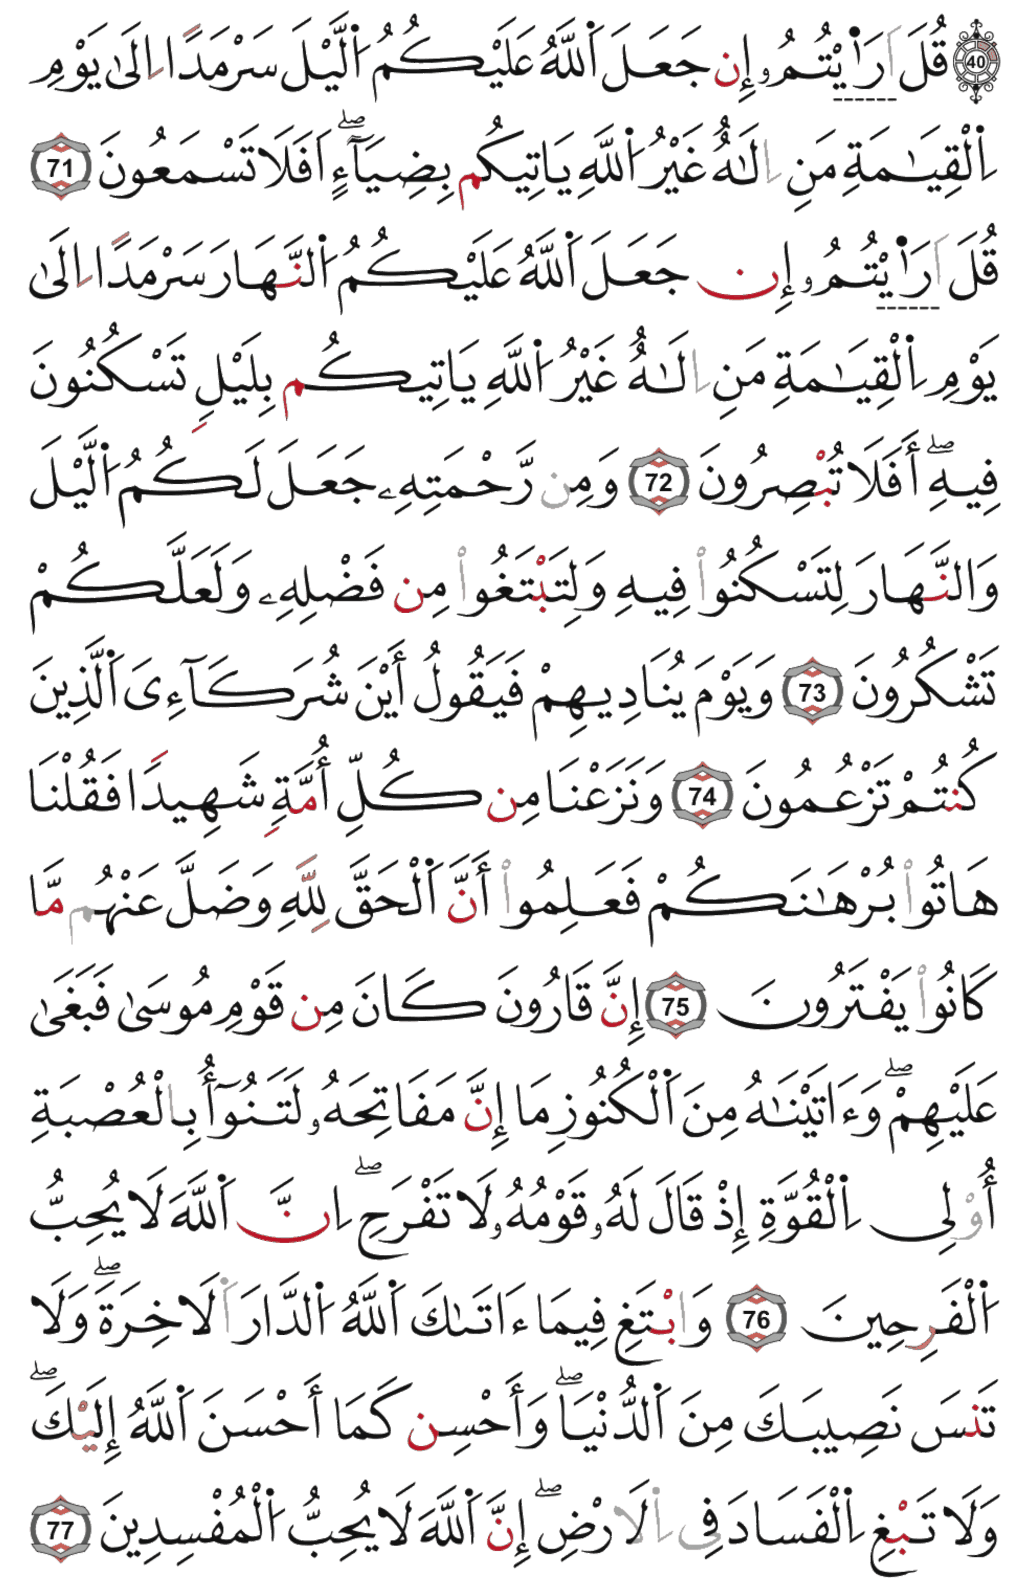 40 قُلَ اَرَٰيْتُمُۥٓ إِن جَعَلَ اَ۬للَّهُ عَلَيْكُمُ اُ۬ليْلَ سَرْمَداً اِلَىٰ يَوْمِ
اِ۬لْقِيَٰمَةِ مَنِ اِلَٰهٌ غَيْرُ اُ۬للَّهِ يَاتِيكُم بِضِيَآءٍۖ اَفَلَا تَسْمَعُونَ 71
قُلَ اَرَٰيْتُمُۥٓ إِن جَعَلَ اَ۬للَّهُ عَلَيْكُمُ اُ۬لنَّهَارَ سَرْمَداً اِلَىٰ
يَوْمِ اِ۬لْقِيَٰمَةِ مَنِ اِلَٰهٌ غَيْرُ اُ۬للَّهِ يَاتِيكُم بِلَيْلٍ تَسْكُنُونَ
فِيهِۖ أَفَلَا تُبْصِرُونَ 72 وَمِن رَّحْمَتِهِۦ جَعَلَ لَكُمُ اُ۬ليْلَ
وَالنَّهَارَ لِتَسْكُنُواْ فِيهِ وَلِتَبْتَغُواْ مِن فَضْلِهِۦ وَلَعَلَّكُمْ
تَشْكُرُونَ 73 وَيَوْمَ يُنَادِيهِمْ فَيَقُولُ أَيْنَ شُرَكَآءِىَ اَ۬لَّذِينَ
كُنتُمْ تَزْعُمُونَ 74 وَنَزَعْنَا مِن كُلِّ أُمَّةٍ شَهِيداً فَقُلْنَا
هَاتُواْ بُرْهَٰنَكُمْ فَعَلِمُواْ أَنَّ اَ۬لْحَقَّ لِلَّهِ وَضَلَّ عَنْهُم مَّا
كَانُواْ يَفْتَرُونَ 75 إِنَّ قَارُونَ كَانَ مِن قَوْمِ مُوسَىٰ فَبَغَىٰ
عَلَيْهِمْۖ وَءَاتَيْنَٰهُ مِنَ اَ۬لْكُنُوزِ مَا إِنَّ مَفَاتِحَهُۥ لَتَنُوٓأُ بِالْعُصْبَةِ
أُوْلِى اِ۬لْقُوَّةِ إِذْ قَالَ لَهُۥ قَوْمُهُۥ لَا تَفْرَحِۖ اِنَّ اَ۬للَّهَ لَا يُحِبُّ
اُ۬لْفَرِحِينَ 76 وَابْتَغِ فِيمَا ءَاتَىٰكَ اَ۬للَّهُ اُ۬لدَّارَ اَ۬لَاخِرَةَۖ وَلَا
تَنسَ نَصِيبَكَ مِنَ اَ۬لدُّنْيَاۖ وَأَحْسِن كَمَا أَحْسَنَ اَ۬للَّهُ إِلَيْكَۖ
وَلَا تَبْغِ اِ۬لْفَسَادَ فِى اِ۬لَارْضِۖ إِنَّ اَ۬للَّهَ لَا يُحِبُّ اُ۬لْمُفْسِدِينَ 77